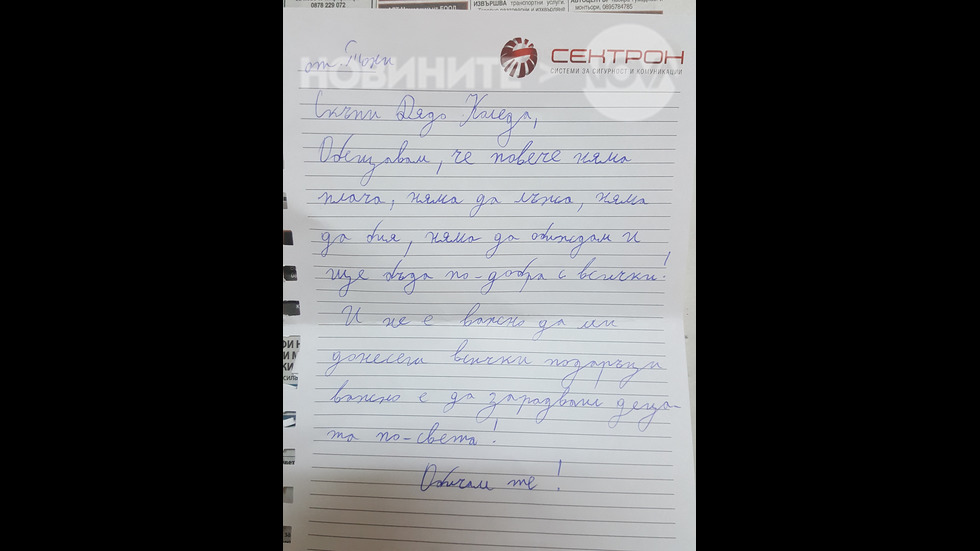 0878 229 072
ИЗВЪРШВА транспортни услуги.
монтьори, 0895784785
СЕКТРОН
СИСТЕМИ ЗА СИГУРНОСТ И КОМУНИКАЦИИ
НОВИНИТЕ NOVA
от
Скъпи Дядо Коледа,
Обещавам, че повече няма
плача, няма да лъжа, няма
да бия, няма да обиждам и
ще бъда по-добра с всички!
И не е важно да ми
донесеш всички подаръци
важно е да зарадваш деца-
та по-света!
Обичам те!